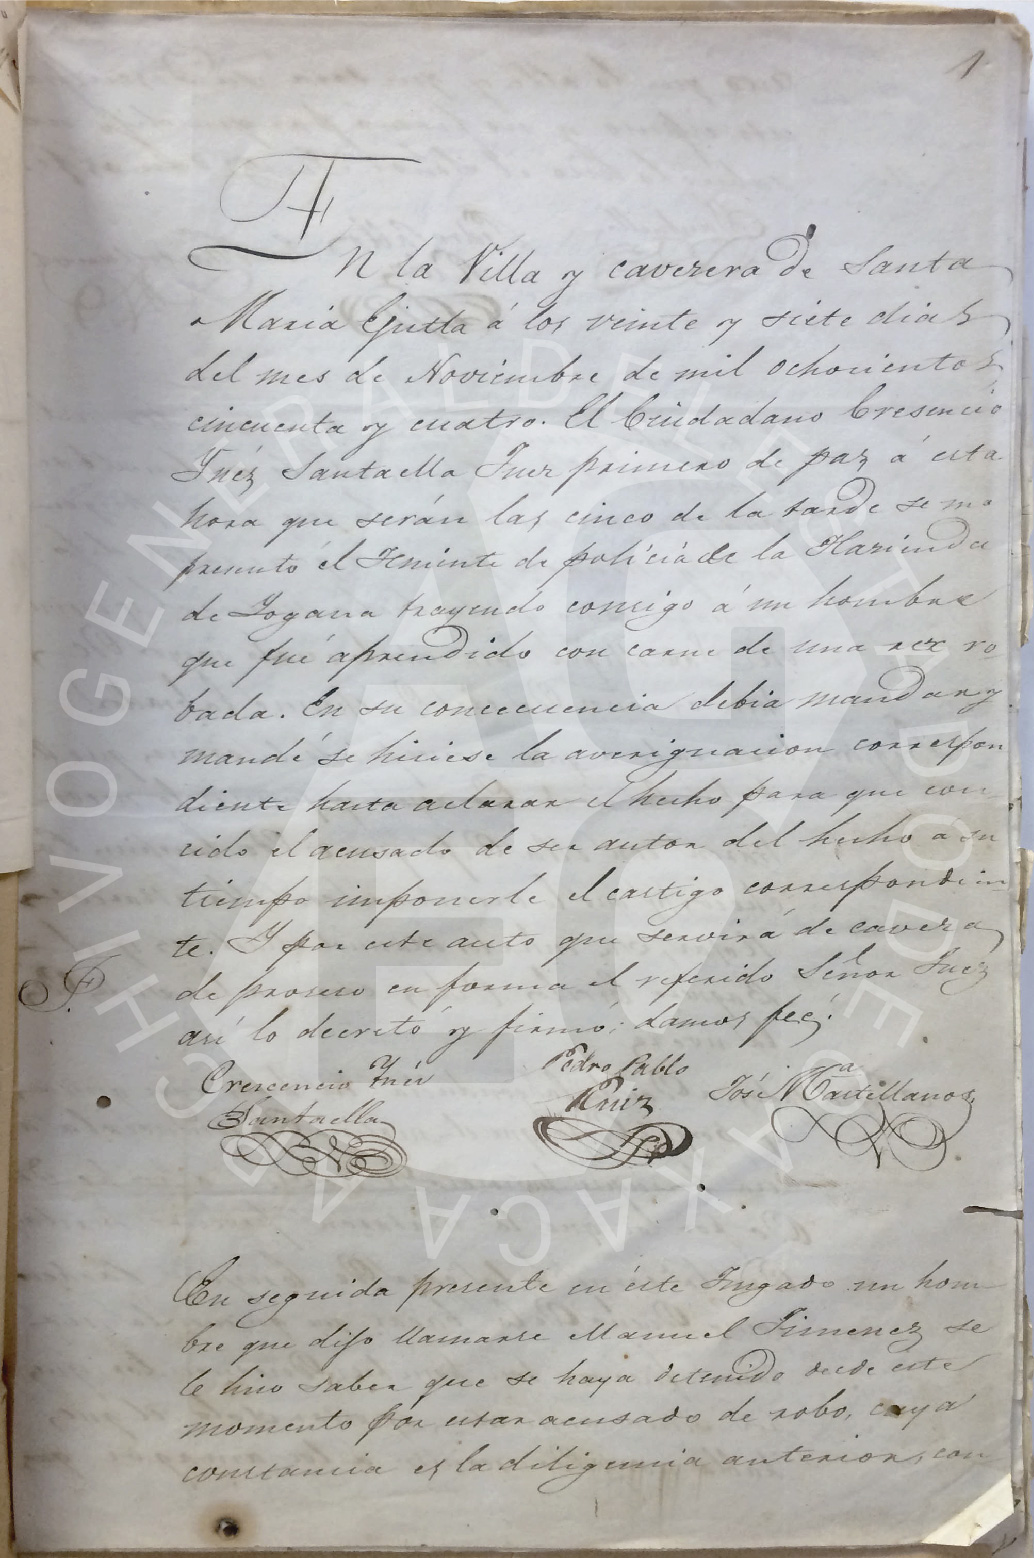 1
EN la Villa y caverera de Santa
Maria Ejutla á los veinte y siete dias
del mes de Noviembre de mil ochocientos
cincuenta y cuatro. El Ciudadano Cresencio
Ynéz Santaella Juez primero de paz á esta
hora que serán las cinco de la tarde se me
presentó el Teniente de policia de la Hazienda
de Yogana trayendo consigo á un hombre
que fué aprendido con carne de una rez ro
bada. En su concecuencia debia mandar y
mandé se hiciese la averiguacion correspon
diente hasta aclarar el hecho para que con
cido el acusado de ser autor del hecho a su
tiempo imponerle el castigo correspondien
te. Y por este auto que servirá de caveza
de proseso en forma el referido Señor Juéz
así lo decretó y firmó; damos feé.
Crescencio Ynés
Santaella
Pedro Pablo
Ruiz
José Ma Castellanos
En seguida presente en éste Jusgado un hom
bre que dijo llamarse Manuel Jimenez se
le hiso saber que se haya detenido desde este
momento por estar acusado de robo, cuya
constancia es la diligencia anterior, con
ARCHIVO GENERAL DEL ESTADO DE OAXACA